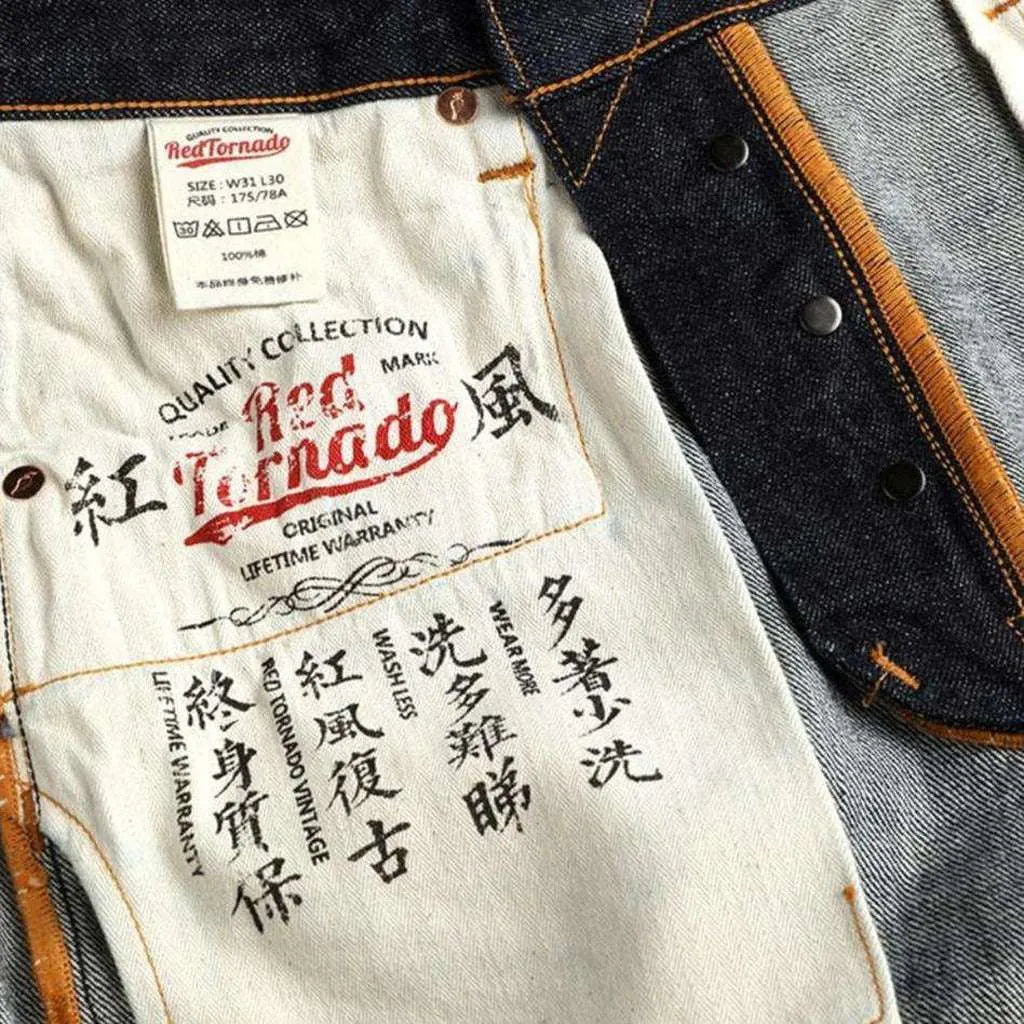 QUALITY COLLECTION
RedTornado
SIZE : W31 L30
尺码 : 175/78A
30
100%棉
本品终身免费修补
QUALITY COLLECTION
TRADE MARK
紅 Red 風
Tornado
ORIGINAL
LIFETIME WARRANTY
多著少洗
WEAR MORE
洗多難睇
WASH LESS
紅風復古
RED TORNADO VINTAGE
終身質保
LIFETIME WARRANTY